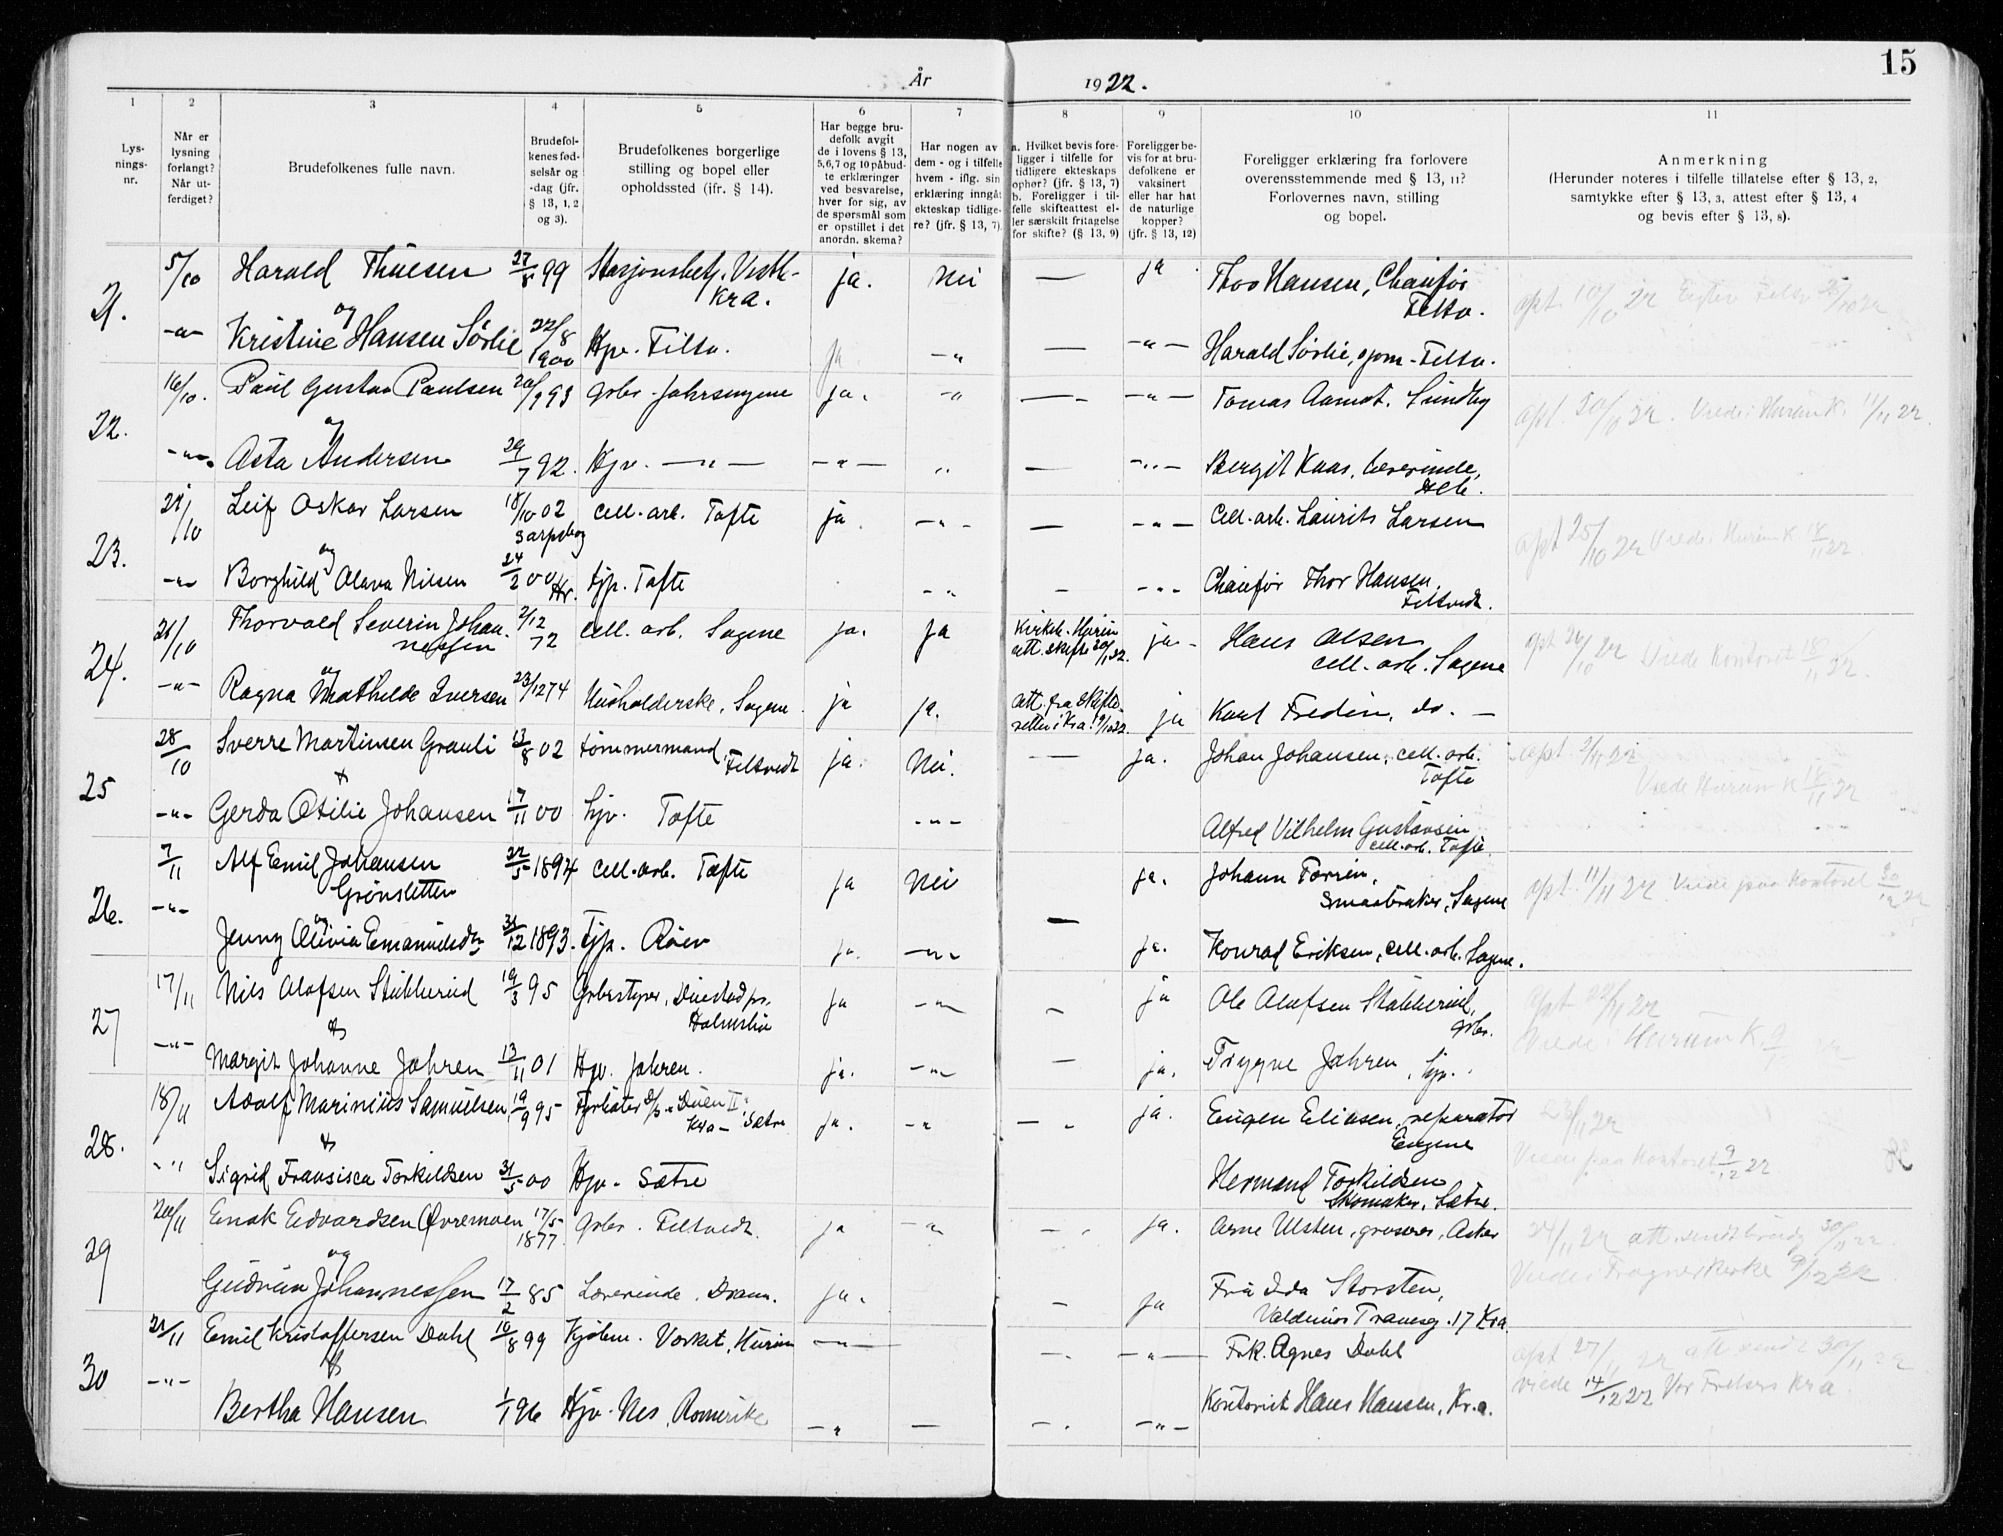 År 1922.
15
1
2
3
4
5
6
7
8
9
10
11
Lys-
nings-
nr.
Når er
lysning
forlangt?
Når ut-
ferdiget?
Brudefolkenes fulle navn.
Brudefol-
kenes fød-
selsår og
-dag (jfr.
§ 13, 1, 2
og 3).
Brudefolkenes borgerlige
stilling og bopel eller
opholdssted (ifr. § 14).
Har begge bru-
defolk avgit
de i lovens § 13,
5,6,7 og 10 påbud-
te erklæringer
ved besvarelse,
hver for sig, av
de spørsmål som
er opstillet i det
anordn. skema?
Har nogen av
dem - og i tilfelle
hvem - iflg. sin
erklæring inngåt
ekteskap tidlige-
re? (jfr. § 13, 7)
a. Hvilket bevis fore-
ligger i tilfelle for
tidligere ekteskaps
ophør? (jfr. § 13, 7)
b. Foreligger i til-
felle skifteattest el-
ler særskilt fritagelse
for skifte? (§ 13, 9)
Foreligger be-
vis for at bru-
defolkene er
vaksinert
eller har hat
de naturlige
kopper?
(jfr. § 13, 12)
Foreligger erklæring fra forlovere
overensstemmende med § 13, 11?
Forlovernes navn, stilling
og bopel.
Anmerkning
(Herunder noteres i tilfelle tillatelse efter § 13, 2,
samtykke efter § 13, 3, attest efter § 13, 4
og bevis efter § 13, 8).
21.
5/10 Harald Thuesen 99 Vestb- ja. Nei — ja Thor Hansen, Chauför
Kra. Filtv.
og
-"- Kristine Hansen Sörlie 22/8 1900 Hjv. Filtv. ja -" — -"- Harald Sörlie, Filtv.
22.
16/10. Paul Gustav Paulsen 93 Gbr. ja. -" — -"- Tomas Aamot. Sundby
og
-"- Asta Andersen 29/7 92. Hjv. —"— -"- " — -"- Bergit Kaas, lærerinde,
apt. 22. Viede i Hurum K. 11/11 22.
23.
/10 Leif Oskar Larsen 18/10 02 Cell.-arb. Tofte ja -"- — -"- Cell.-arb. Laurits Larsen
Sarpsborg
og
-"- Borghild Olava Nilsen 24/2 00 Hr. Tjp. Tofte -"- — -"- Chauför Thor Hansen,
Filtvedt.
apt 25/10 22 Viede i Hurum K. 18/11 22.
24.
21/10 Thorvald Severin Johan- 2/12 72 Cell. arb. Sagene ja. ja ja - Hans Olsen
nessen cell. arb. Sagene
og
-"- Ragna Mathilde Iversen 23/12 74 Husholderske, Sagene ja ja. ja Karl Fredin, do. —
apt 26/10 22 Viede Kontoret 18/11 22.
25
28/10 Sverre Martinsen Grauli 13/8 02 tømmermand, Filtvedt ja. Nei. — ja. Johan Johansen, cell. arb.
Tofte
&
-"- Gerda Otilie Johansen 17/11 00 hjv. Tofte -"- Alfred Vilhelm Gustavsen
cell.-arb. Tofte.
apt. 2/11 22
Viede Hurum K 18/11 22
26.
7/11 Alf Emil Johansen 22/5 1894 Cell.-arb. Tofte ja Nei ja. Johann Torrin,
Grönsletten Smaabruker, Sagene
og
-"- Jenny Olivia Emanuelsdtr 31/12 1893. Tjp. Röer ja. -"- — ja. Konrad Eriksen, cell.-arb. Sagene.
apt. 11/11 22 Viede paa Kontoret 22
27
17/11 Nils Olafsen Stubberud 19/3 95 Gbestyrer, Holmsbu ja -"- - ja Ole Olafsen Stubberud,
gbr.
&
-"- Margit Johanne Jahren 13/11 01 Hjv. Jahren. ja. -"- — ja. Trygve Jahren
apt 22/11 22
Viede i Hurum K. 9 22
28.
18/11 Adolf Marinius Samuelsen 19/9 95 Fyrböter D/S "Duen II" ja. -" — ja. Eugen Eliasen, reparatør
Kra - Sætre Engene
&
-" Sigrid Fransisca Torkildsen 31/5 00 Hjv. Sætre Hermand Torkildsen
Skomaker, Sætre.
23/11 22
Viede paa Kontoret 9/12 22
29
20/11 Enok Edvardsen Øvremoen 17/5 1877. Gbr. Filtvedt. ja -" - ja. Arne Ulsten, grosserer, Asker
og
Gudrun Johannessen 17/2 85 Lærerinde. Dram. ja. — ja Fru Ida Storsten,
17 Kra.
24/11 22 att. sendt 30/11 22
Viede i Frogner Kirke 9/12 22
30
21/11 Emil Kristoffersen Dahl 10/8 99 Kjøbm. Verket, Hurum —"— -. —"— Frk. Agnes Dahl
&
-"- Bertha Hansen 1/1 96 Hjv. Nes, Romerike -" — -. -"- Kontorist Hans Hansen, Kr.a.
apt 27/11 22 att sendt 30/11 22
viede 14/12 22 Vor Frelsers Kra.